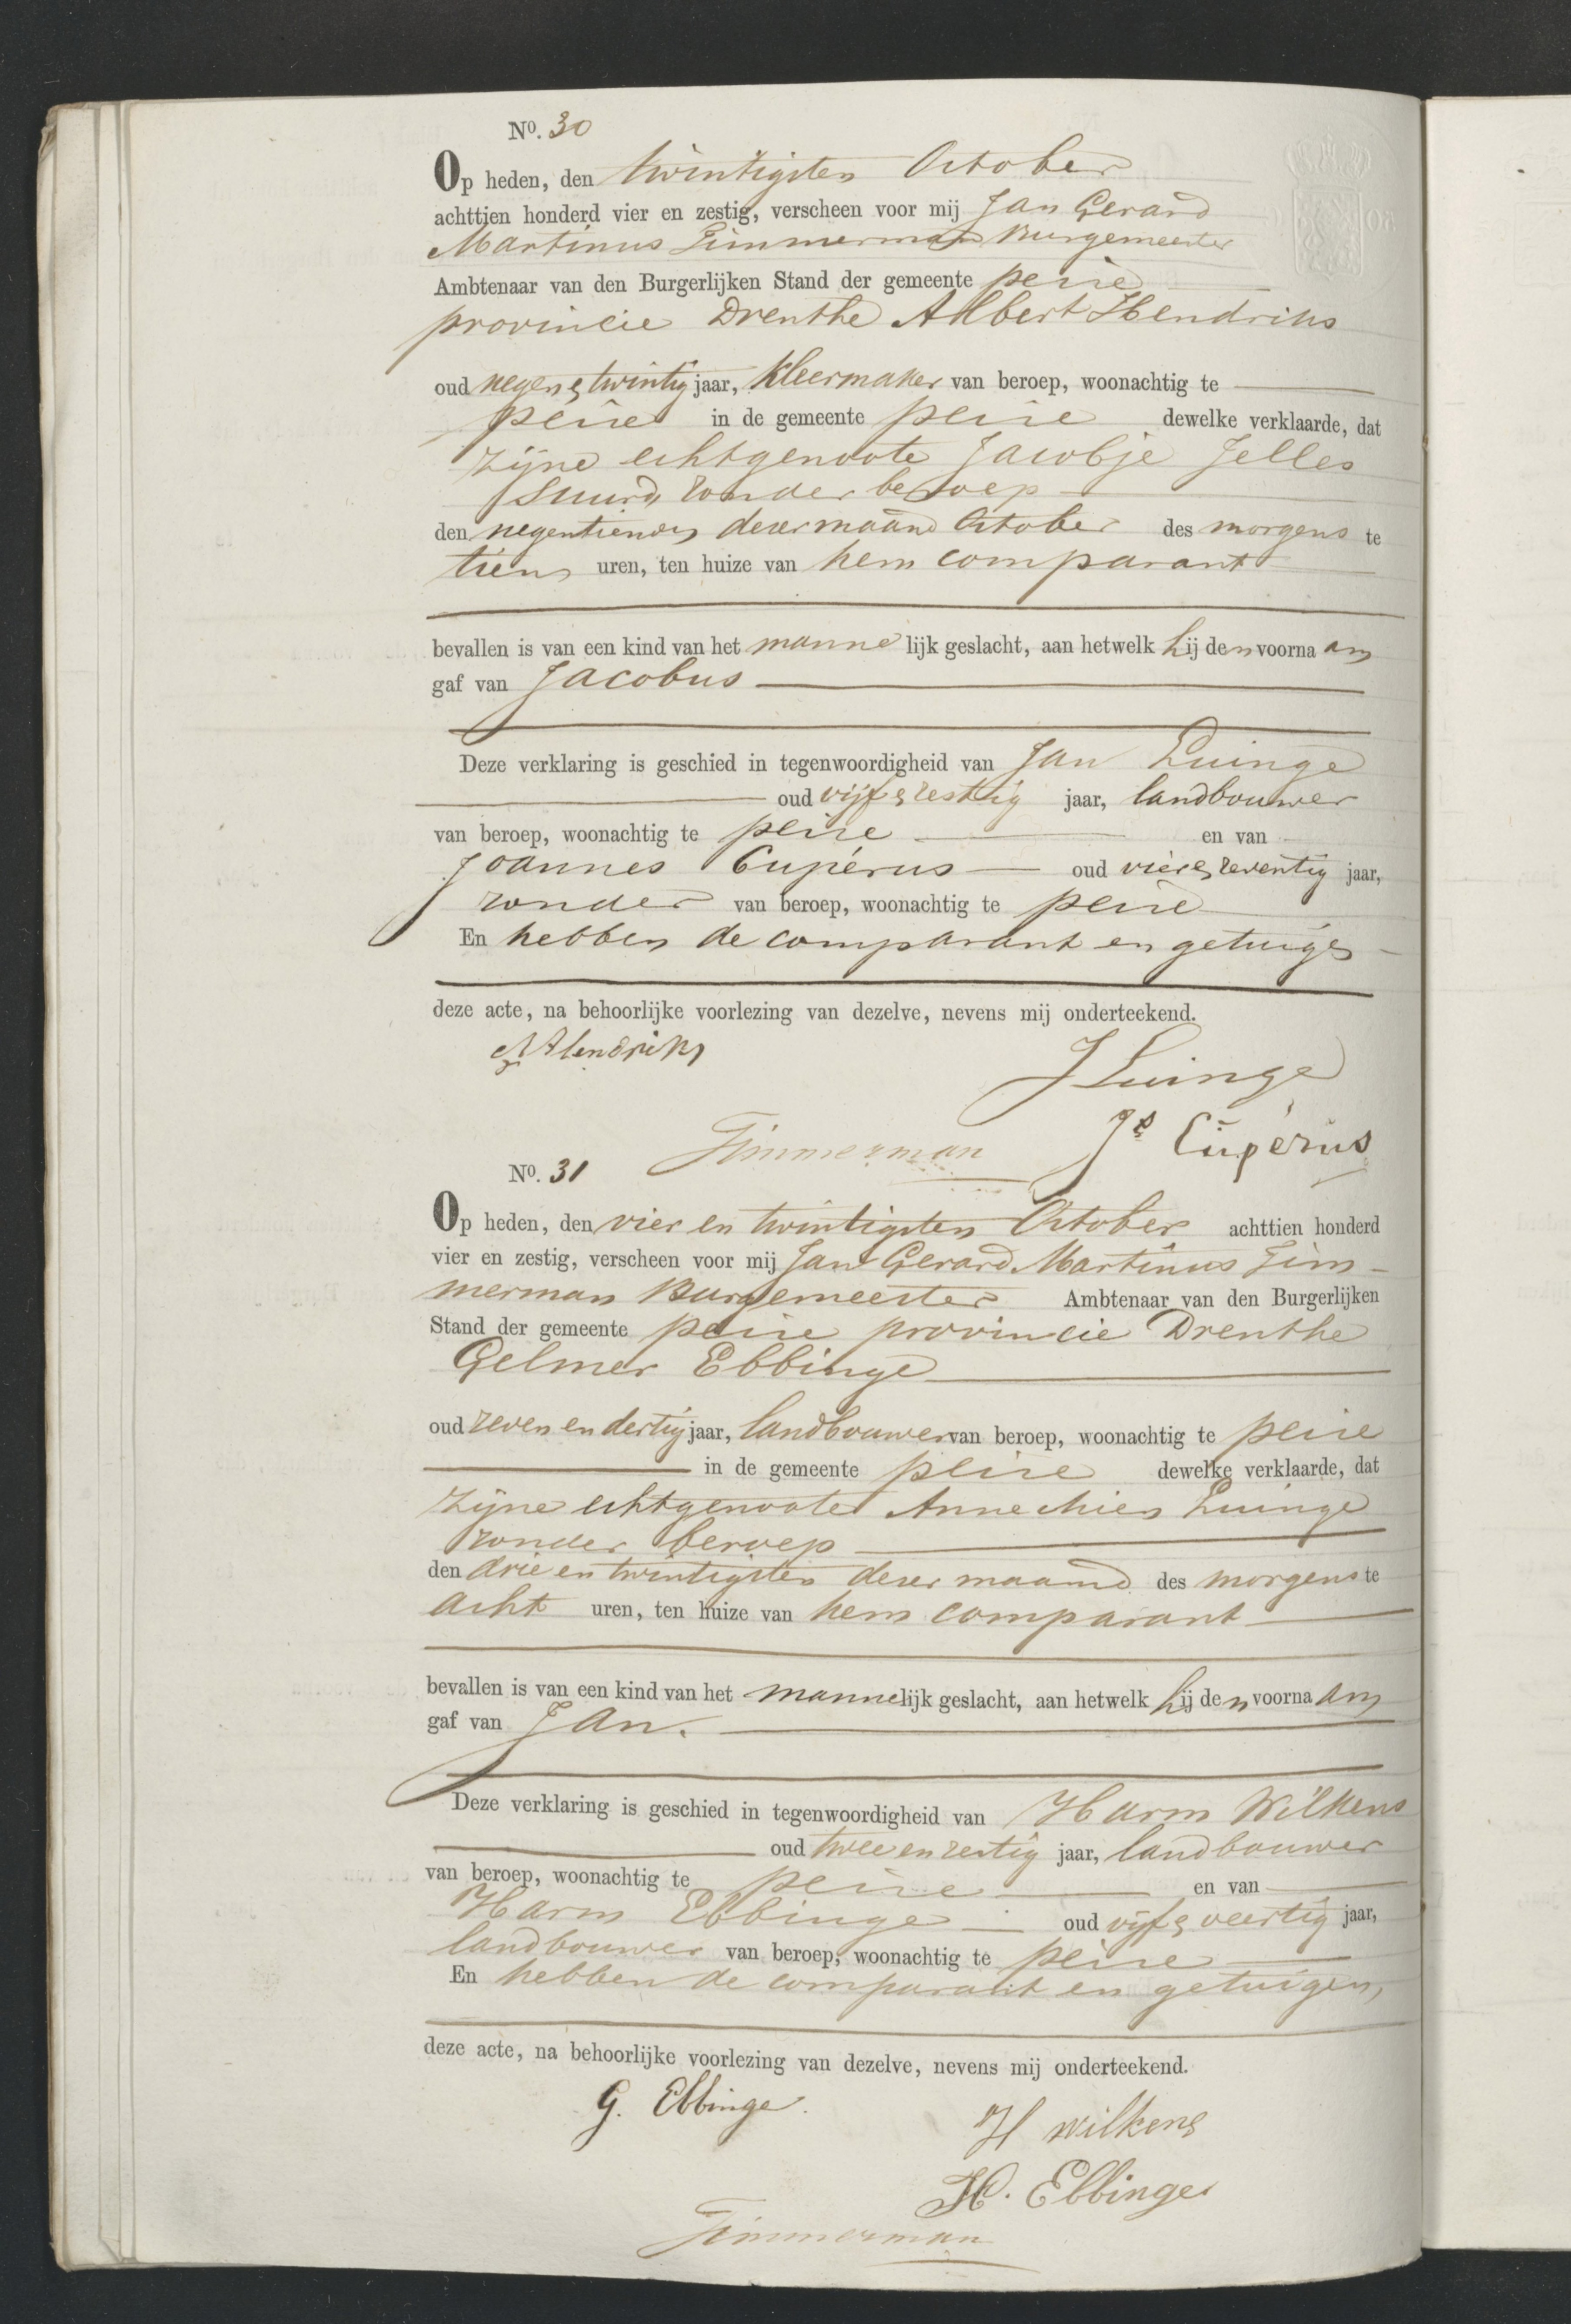 No. 30
Op heden, den twintigsten October
achttien honderd vier en zestig, verscheen voor mij Jan Gerard
Martinus Timmerman Burgemeester
Ambtenaar van den Burgerlijken Stand der gemeente peize
provincie Drenthe Albert Hendriks
oud negen & twintig jaar, Kleermaker van beroep, woonachtig te
peize in de gemeente peize dewelke verklaarde, dat
zijne echtgenoote Jacobje Jelles
Suurd, zonder beroep
den negentienden dezer maand October des morgens te
tien uren, ten huize van hem comparant
bevallen is van een kind van het mannelijk geslacht, aan hetwelk hij den voornaam
gaf van Jacobus
Deze verklaring is geschied in tegenwoordigheid van Jan Luinge
oud vijf & zestig jaar, landbouwer
van beroep, woonachtig te peize en van
Joannes Cupérus oud vier & zeventig jaar,
zonder van beroep, woonachtig te peize
En hebben de comparant en getuigen
deze acte, na behoorlijke voorlezing van dezelve, nevens mij onderteekend.
A Hendriks
J Luinge
Timmerman Js Cupérus
No. 31
Op heden, den vier en twintigsten October achttien honderd
vier en zestig, verscheen voor mij Jan Gerard Martinus Tim-
merman Burgemeester Ambtenaar van den Burgerlijken
Stand der gemeente peize provincie Drenthe
Gelmer Ebbinge
oud zeven en dertig jaar, landbouwer van beroep, woonachtig te peize
in de gemeente peize dewelke verklaarde, dat
zijne echtgenoote Annechien Luinge
zonder beroep
den drie en twintigsten dezer maand des morgens te
acht uren, ten huize van hem comparant
bevallen is van een kind van het mannelijk geslacht, aan hetwelk hij den voornaam
gaf van Jan.
Deze verklaring is geschied in tegenwoordigheid van Harm Wilkens
oud twee en zestig jaar, landbouwer
van beroep, woonachtig te peize en van
Harm Ebbinge oud vijf & veertig jaar,
landbouwer van beroep, woonachtig te peize
En hebben de comparant en getuigen,
deze acte, na behoorlijke voorlezing van dezelve, nevens mij onderteekend.
G. Ebbinge.
H Wilkens
H. Ebbinge
Timmerman